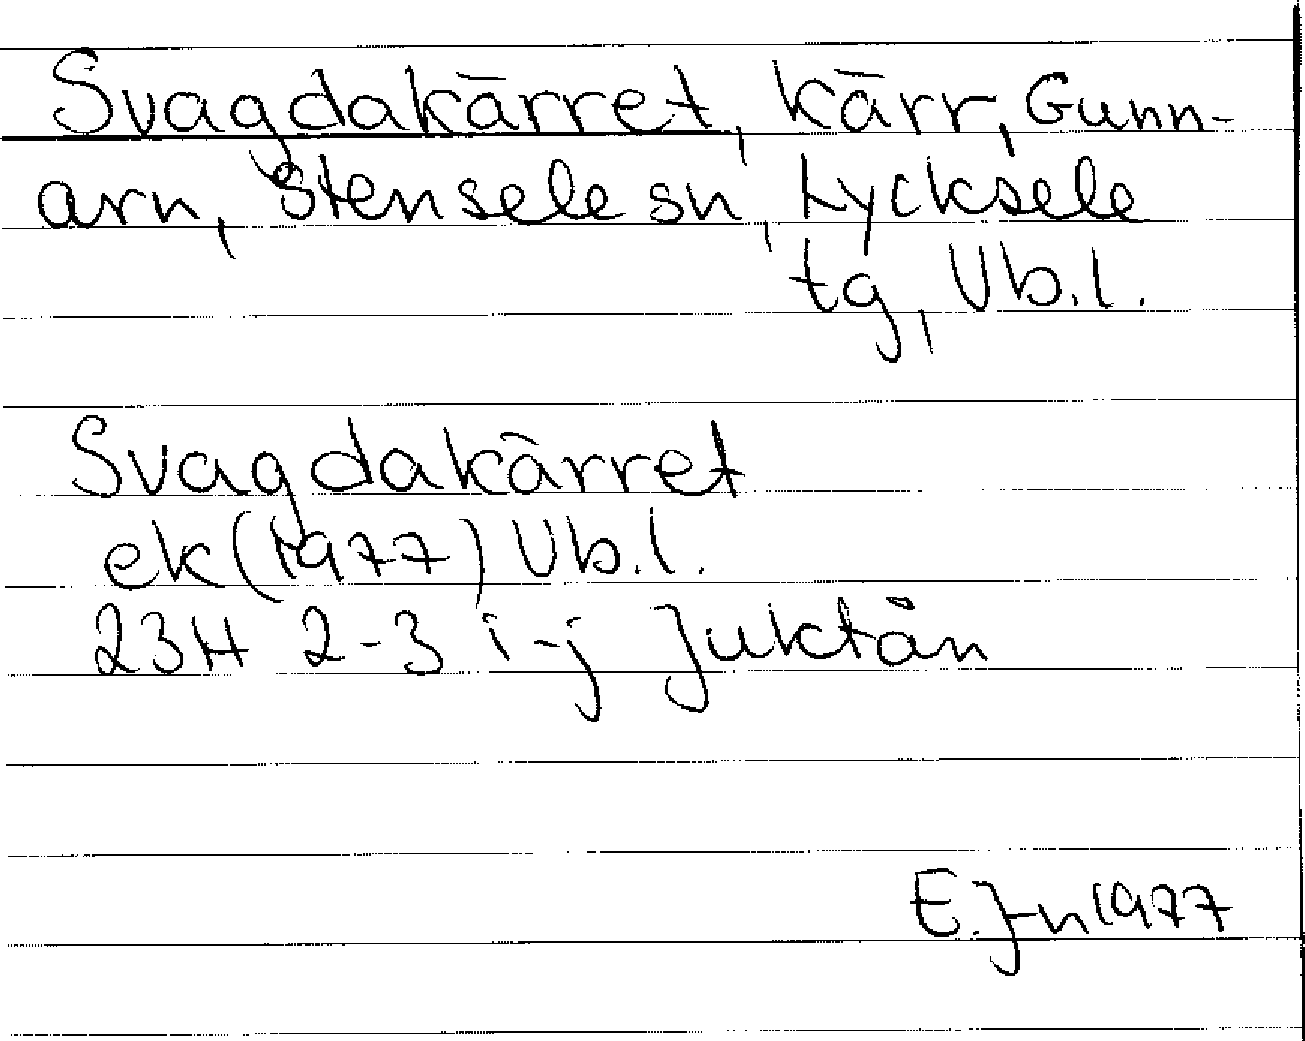 Svagdakärret, kärr, Gunn-
arn, Stensele sn, Lycksele
tg, Vb.l.
Svagdakärret
ek (1977) Vb.l.
23H 2-3 i-j Juktån
E. Jn 1977